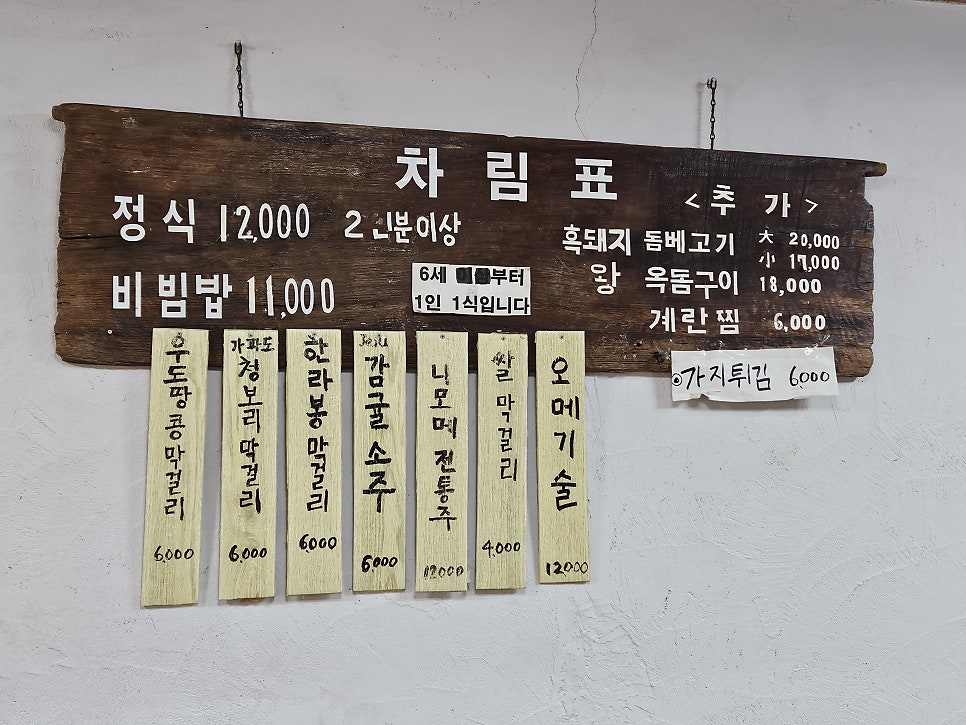 차림표
정식 12,000 2인분이상
비빔밥 11,000
6세 부터
1인 1식입니다
<추 가>
흑돼지 돔베고기 大 20,000
小 17,000
왕 옥돔구이 18,000
계란찜 6,000
◎가지튀김 6,000
우도땅콩막걸리 6,000
가파도 청보리막걸리 6,000
한라봉막걸리 6,000
Jeju 감귤소주 6,000
니모메 전통주 12,000
쌀막걸리 4,000
오메기술 12,000